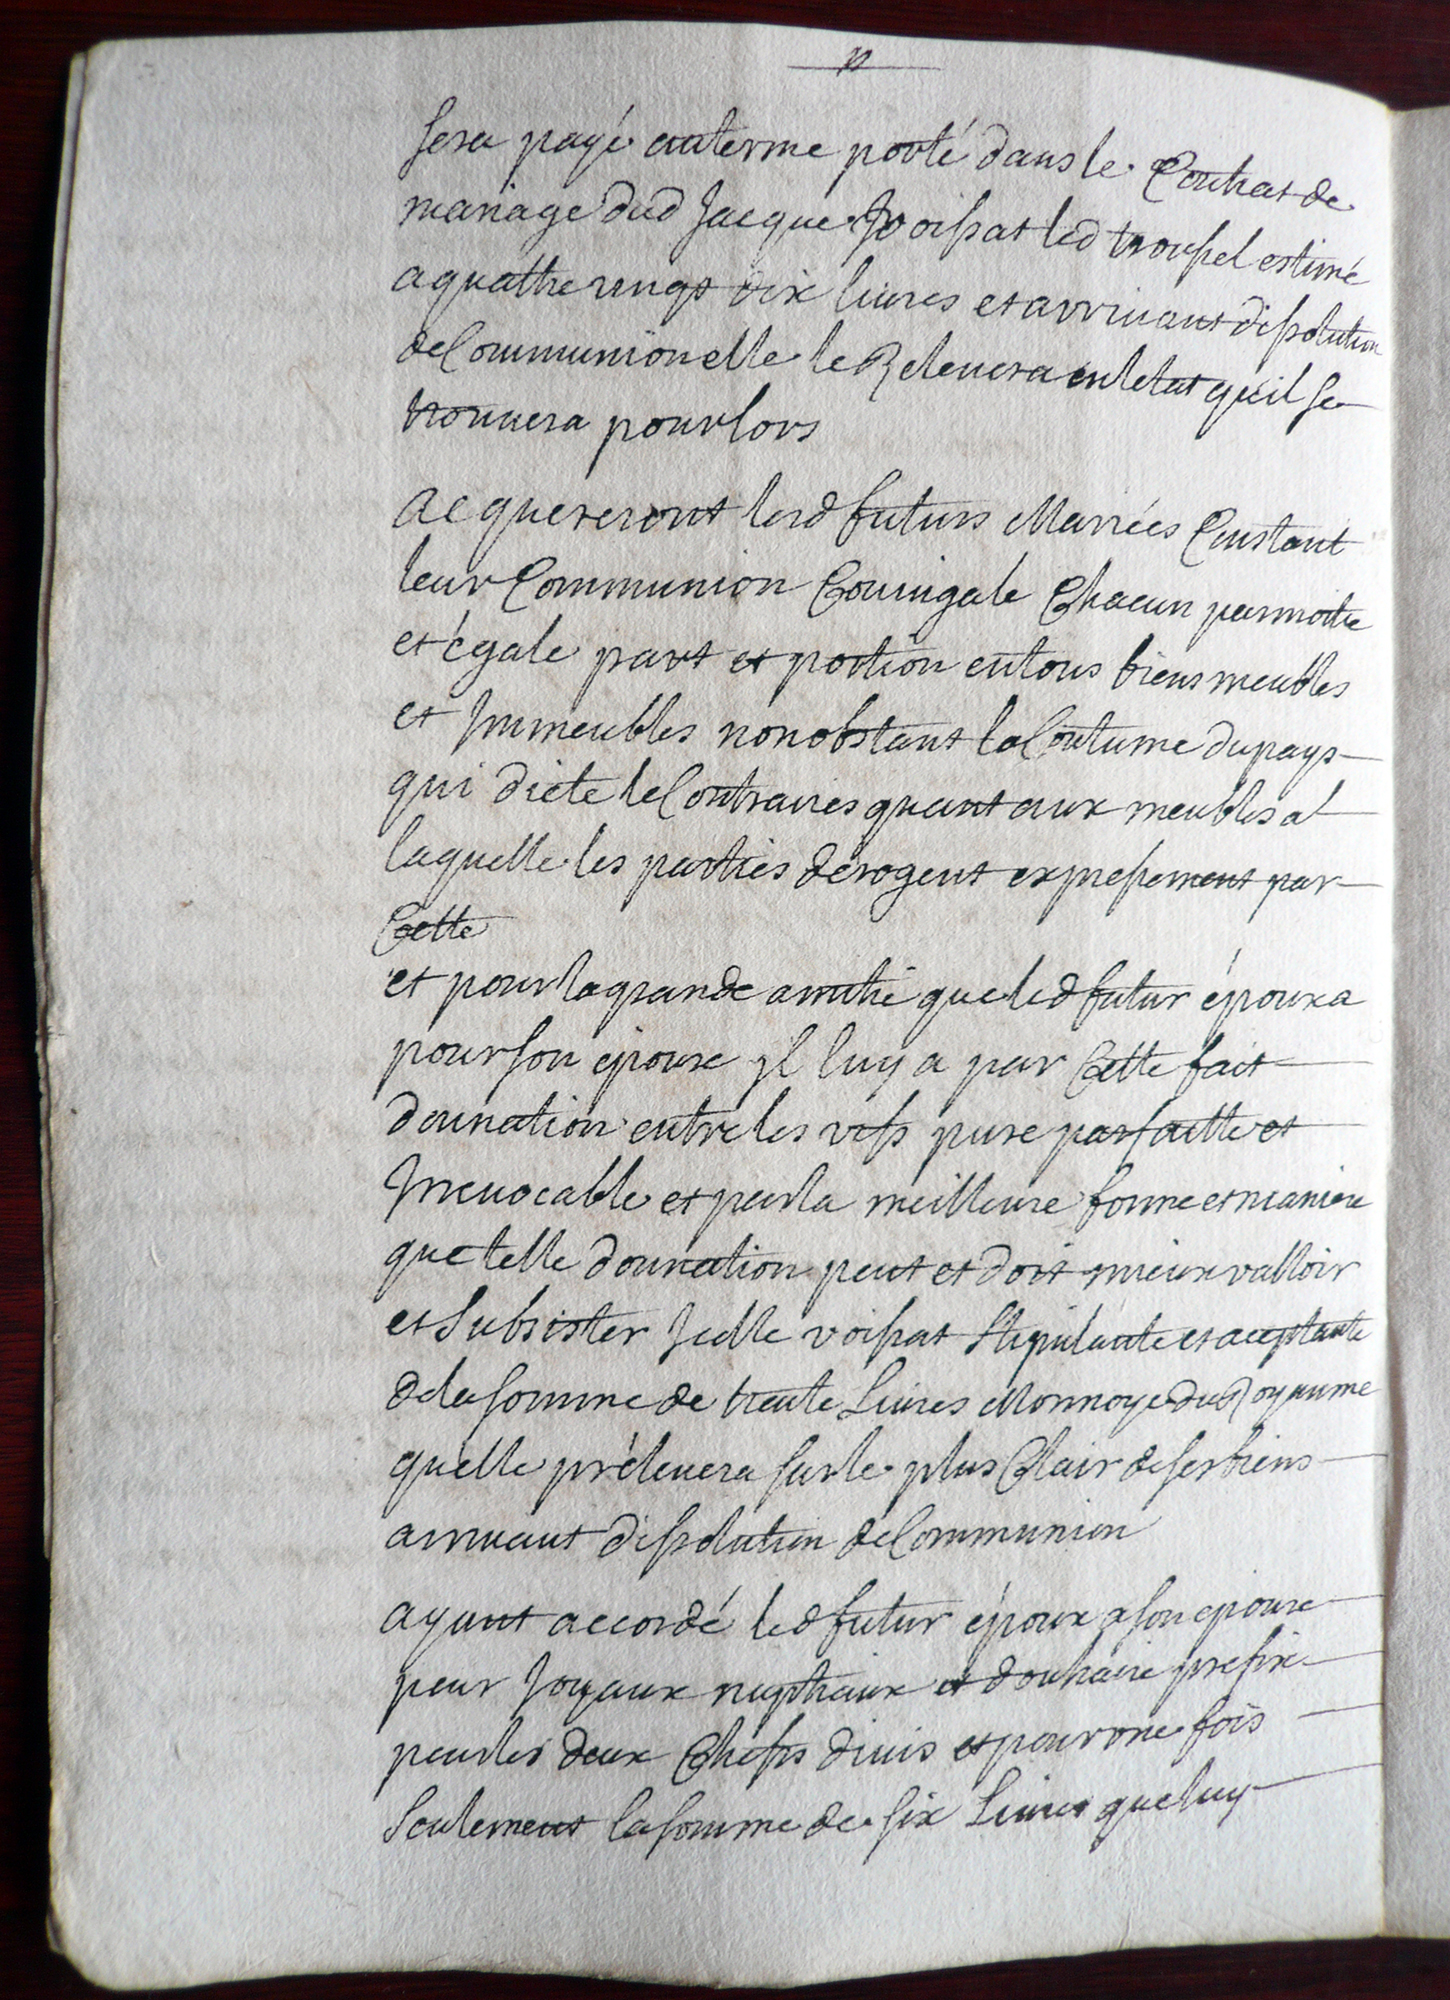 sera payé auterme porté dans le Contrat de
mariage dud Jacque Voissat led troussel estimé
a quattre vingt dix livres et arrivant dissolution
de Communion elle le Relevera en letat qu'il se
trouvera pour lors
acquereront lesd futurs Mariées Constant
leur Communion Couvigale Chacun par moitie
et égale part et portion en tous biens meubles
et Immeubles nonobstant la Coutume du pays
qui dicte le Contraires quant aux meubles a
laquelle les parties dérogent expressement par
Cette
et pour la grande amitié que led futur époux a
pour son epouse yl luy a par Cette fait
dounation entre les vifs pure parfaitte et
Irrevocable et par la meilleure forme et maniere
que telle dounation peut et doit mieux valloir
et Subsister Jcelle voissat Stipulante et aceptante
de la somme de trente Livres Monnoye du Royaume
quelle prélevera sur le plus Clair de ses biens
arrivant dissolution de Communion
ayant accordé led futur époux a son epouse
pour Joyaux nuptiaux et douhaire prefix
pour les deux Chefs divis et pour une fois
Seulement la somme de six Livres que luy